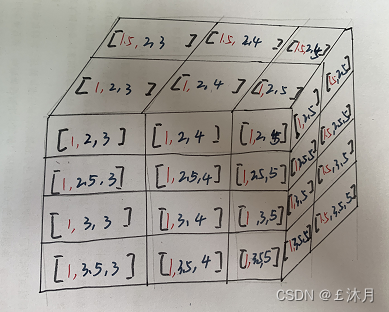 [1.5, 2, 3] [1.5, 2, 4] [1.5, 2, 5]
[1, 2, 3] [1, 2, 4] [1, 2, 5]
[1, 2, 3] [1, 2, 4] [1, 2, 5] [1, 2, 5] [1.5, 2, 5]
[1, 2.5, 3] [1, 2.5, 4] [1, 2.5, 5] [1, 2.5, 5] [1.5, 2.5, 5]
[1, 3, 3] [1, 3, 4] [1, 3, 5] [1, 3, 5] [1.5, 3, 5]
[1, 3.5, 3] [1, 3.5, 4] [1, 3.5, 5] [1, 3.5, 5] [1.5, 3.5, 5]
CSDN @£沐月